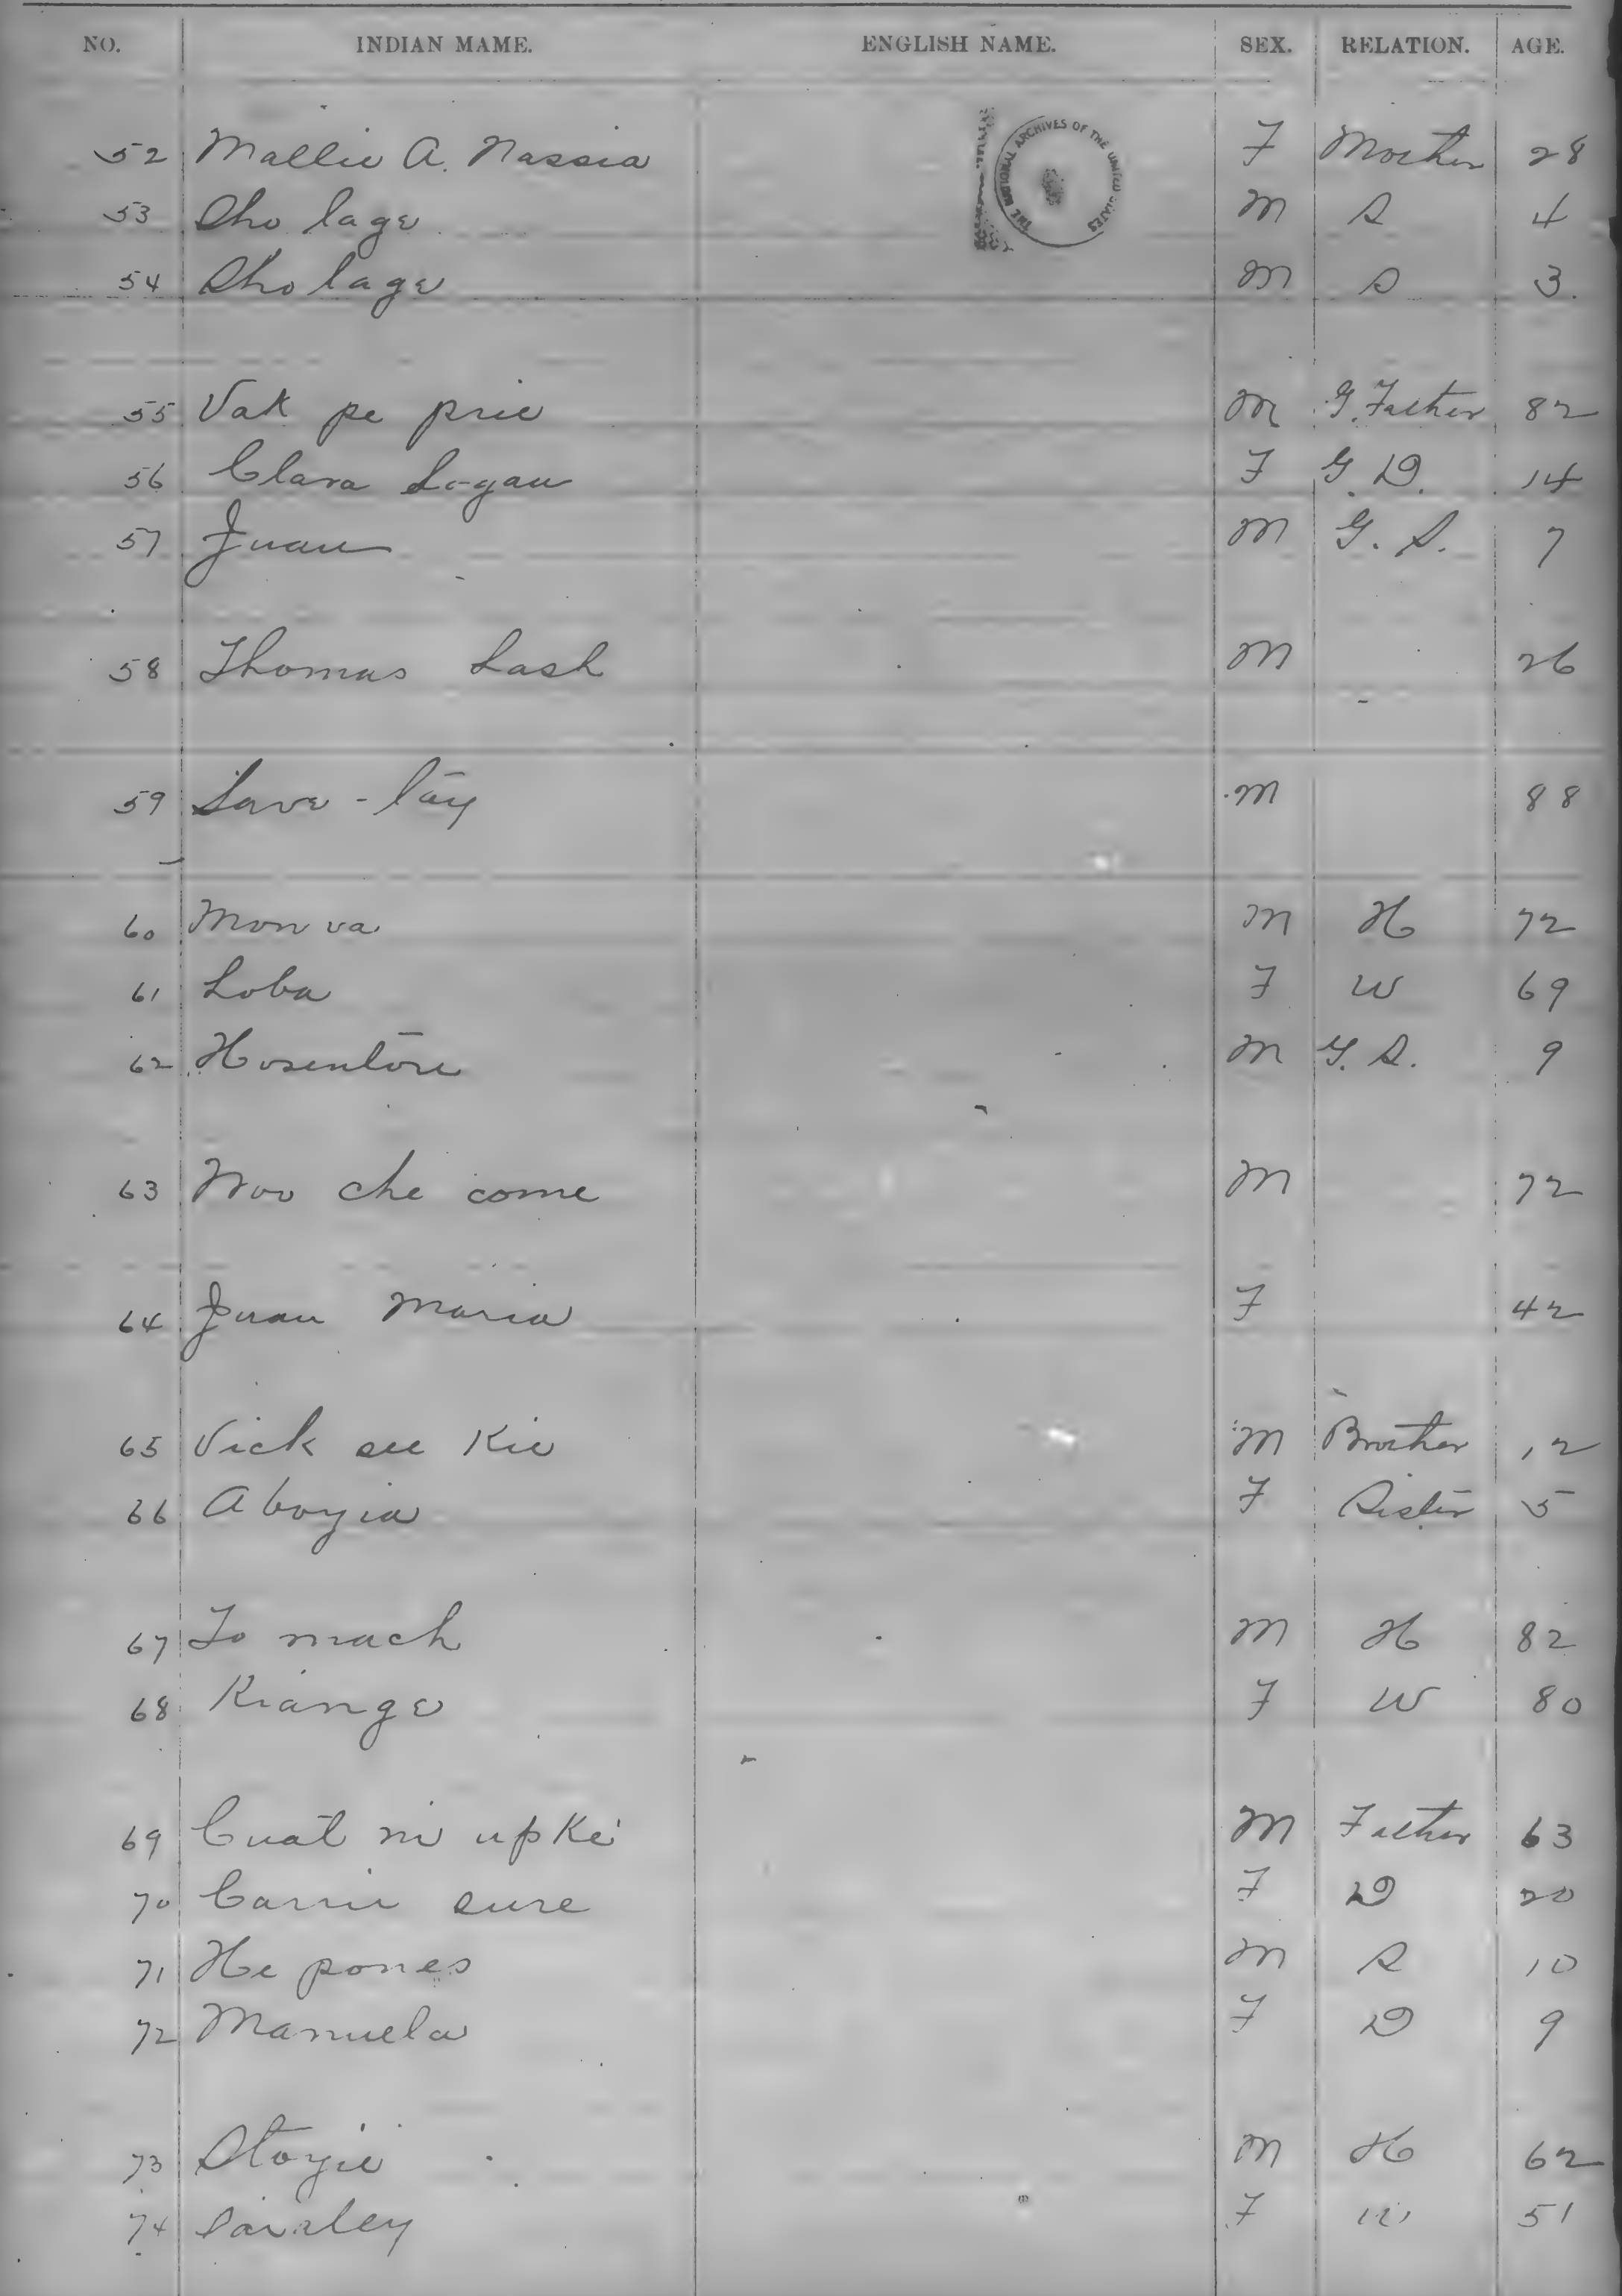 NO. INDIAN MAME. ENGLISH NAME. SEX. RELATION. AGE.
THE NATIONAL ARCHIVES OF THE UNITED STATES
52 Mallie A. Nassia F Mother 28
53 Sho lage M S 4
54 Sho lage M S 3.
55 Vak pe prie M G. Father 82
56 Clara Logan F G. D. 14
57 Juan M G. S. 7
58 Thomas Lash M 26
59 Save-lay M 88
60 Mon va M H 72
61 Loba F W 69
62 Hosentore M G. S. 9
63 Woo che come M 72
64 Juan Maria F 42
65 Vick see Kie M Brother 12
66 Aboyia F Sister 5
67 To mach M H 82
68 Kiange F W 80
69 Cuat ni up Ke M Father 63
70 Carrie sure F D 20
71 He pones M S 10
72 Manuela F D 9
73 Stoyie M H 62
74 F W 51